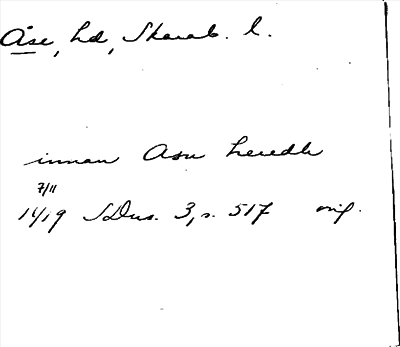 Åse, hd, Skarab. l.
innan Asu heredh
7/11
1419 SDns. 3, s. 517 orig.